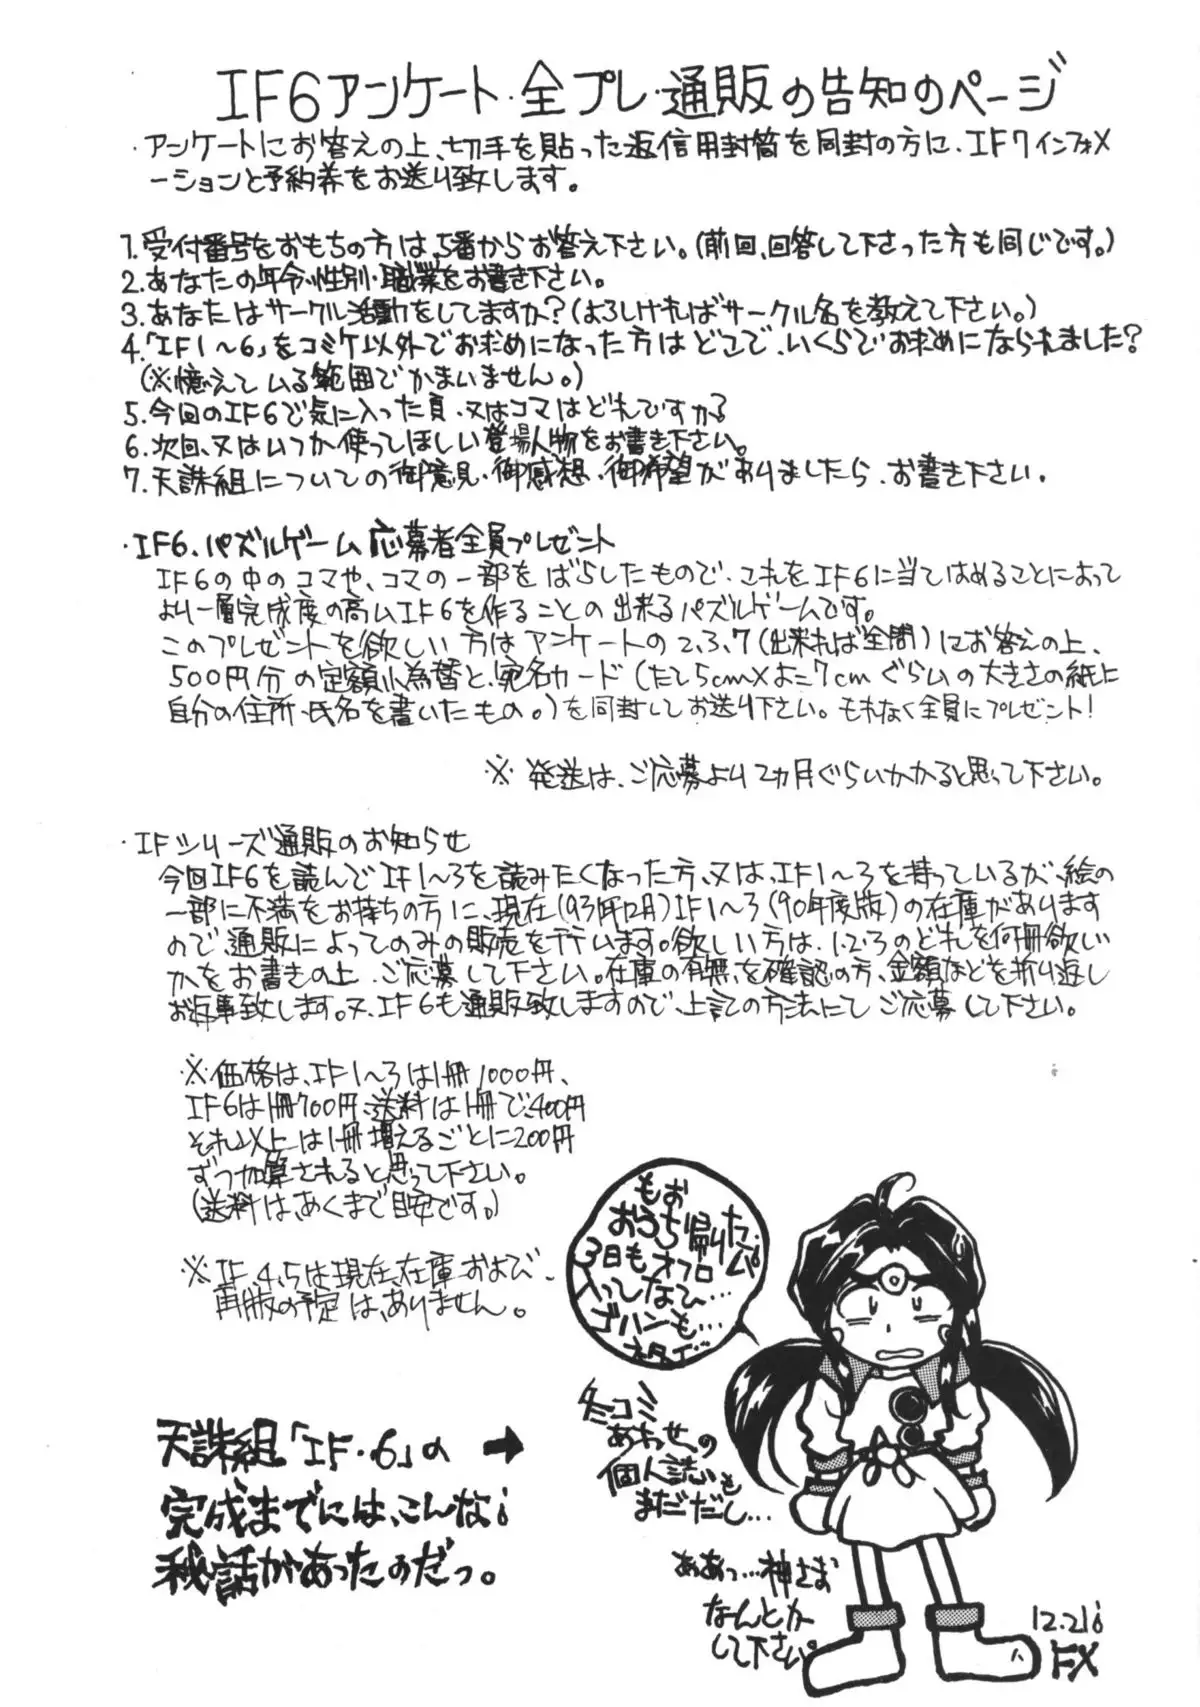 IF6アンケート・全プレ・通販の告知のページ
・アンケートにお答えの上、切手を貼った返信用封筒を同封の方に、IF7インフォメ
ーションと予約券をお送り致します。
1.受付番号をおもちの方は、5番からお答え下さい。(前回、回答して下さった方も同じです。)
2.あなたの年令・性別・職業をお書き下さい。
3.あなたはサークル活動をしてますか?(よろしければサークル名を教えて下さい。)
4.「IF1〜6」をコミケ以外でお求めになった方はどこで、いくらでお求めになられました?
(※憶えている範囲でかまいません。)
5.今回のIF6で気に入った頁、又はコマはどれですか?
6.次回、又はいつか使ってほしい登場人物をお書き下さい。
7.天誅組についての御意見・御感想・御希望がありましたら、お書き下さい。
・IF6.パズルゲーム応募者全員プレゼント
IF6の中のコマや、コマの一部をばらしたもので、これをIF6に当てはめることによって
より一層完成度の高いIF6を作ることの出来るパズルゲームです。
このプレゼントを欲しい方はアンケートの2、3、7(出来れば全問)にお答えの上、
500円分の定額小為替と、宛名カード(たて5cm×よこ7cmぐらいの大きさの紙に
自分の住所・氏名を書いたもの。)を同封してお送り下さい。もれなく全員にプレゼント!
※発送は、ご応募より2ヵ月ぐらいかかると思って下さい。
・IFシリーズ通販のお知らせ
今回IF6を読んでIF1〜3を読みたくなった方、又は、IF1〜3を持っているが、絵の
一部に不満をお持ちの方に、現在(93年12月)IF1〜3(90年度版)の在庫があります
ので、通販によってのみの販売を行います。欲しい方は、1.2.3のどれを何冊欲しい
かをお書きの上、ご応募して下さい。在庫の有無を確認の方、金額などを折り返し
お返事致します。又、IF6も通販致しますので、上記の方法にてご応募して下さい。
※価格は、IF1〜3は1冊1000円、
IF6は1冊700円、送料は1冊で、400円
それ以上は1冊増えるごとに200円
ずつ加算されると思って下さい。
(送料は、あくまで目安です。)
※IF.4.5は現在、在庫および、
再版の予定は、ありません。
もお
おうち帰りた
3日もオフロ
入ってなひ…
ゴハンも…
冬コミ
あわせの
個人誌も
まだだし…
天誅組「IF・6」の→
完成までには、こんな
秘話があったのだっ。
ああっ…神さま
なんとか
して下さい。
12.21
FX